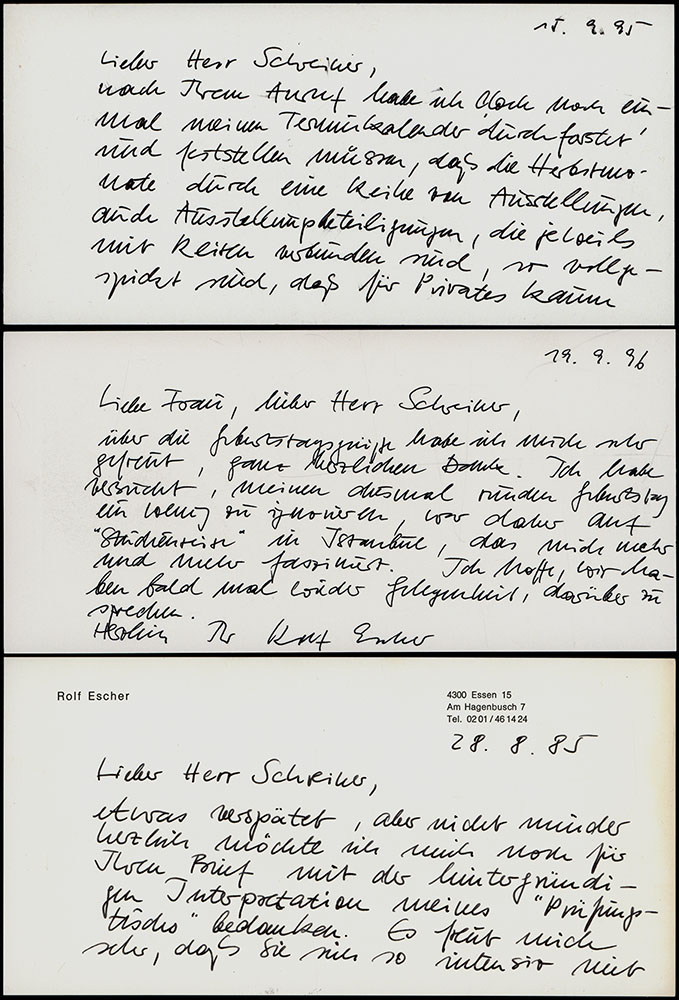 15. 9. 95
Lieber Herr Schreiner,
nach Ihrem Anruf habe ich doch noch ein-
mal meinen Terminkalender 'durchforstet'
und feststellen müssen, daß die Herbstmo-
nate durch eine Reihe von Ausstellungen,
auch Ausstellungsbeteiligungen, die jeweils
mit Reisen verbunden sind, so vollge-
spickt sind, daß für Privates kaum
19. 9. 96
Liebe Frau, lieber Herr Schreiner,
über die Geburtstagsgrüße habe ich mich sehr
gefreut, ganz herzlichen Dank. Ich habe
versucht, meinen diesmal runden Geburtstag
ein wenig zu ignorieren, war daher auf
"Studienreise" in Istanbul, das mich mehr
und mehr fasziniert. Ich hoffe, wir ha-
ben bald mal wieder Gelegenheit, darüber zu
sprechen.
Herzlich Ihr Rolf Escher
Rolf Escher
4300 Essen 15
Am Hagenbusch 7
Tel. 02 01 / 46 14 24
28. 8. 85
Lieber Herr Schreiner,
etwas verspätet, aber nicht minder
herzlich möchte ich mich noch für
Ihren Brief mit der hintergründi-
gen Interpretation meines "Prüfungs-
tischs" bedanken. Es freut mich
sehr, daß Sie sich so intensiv mit